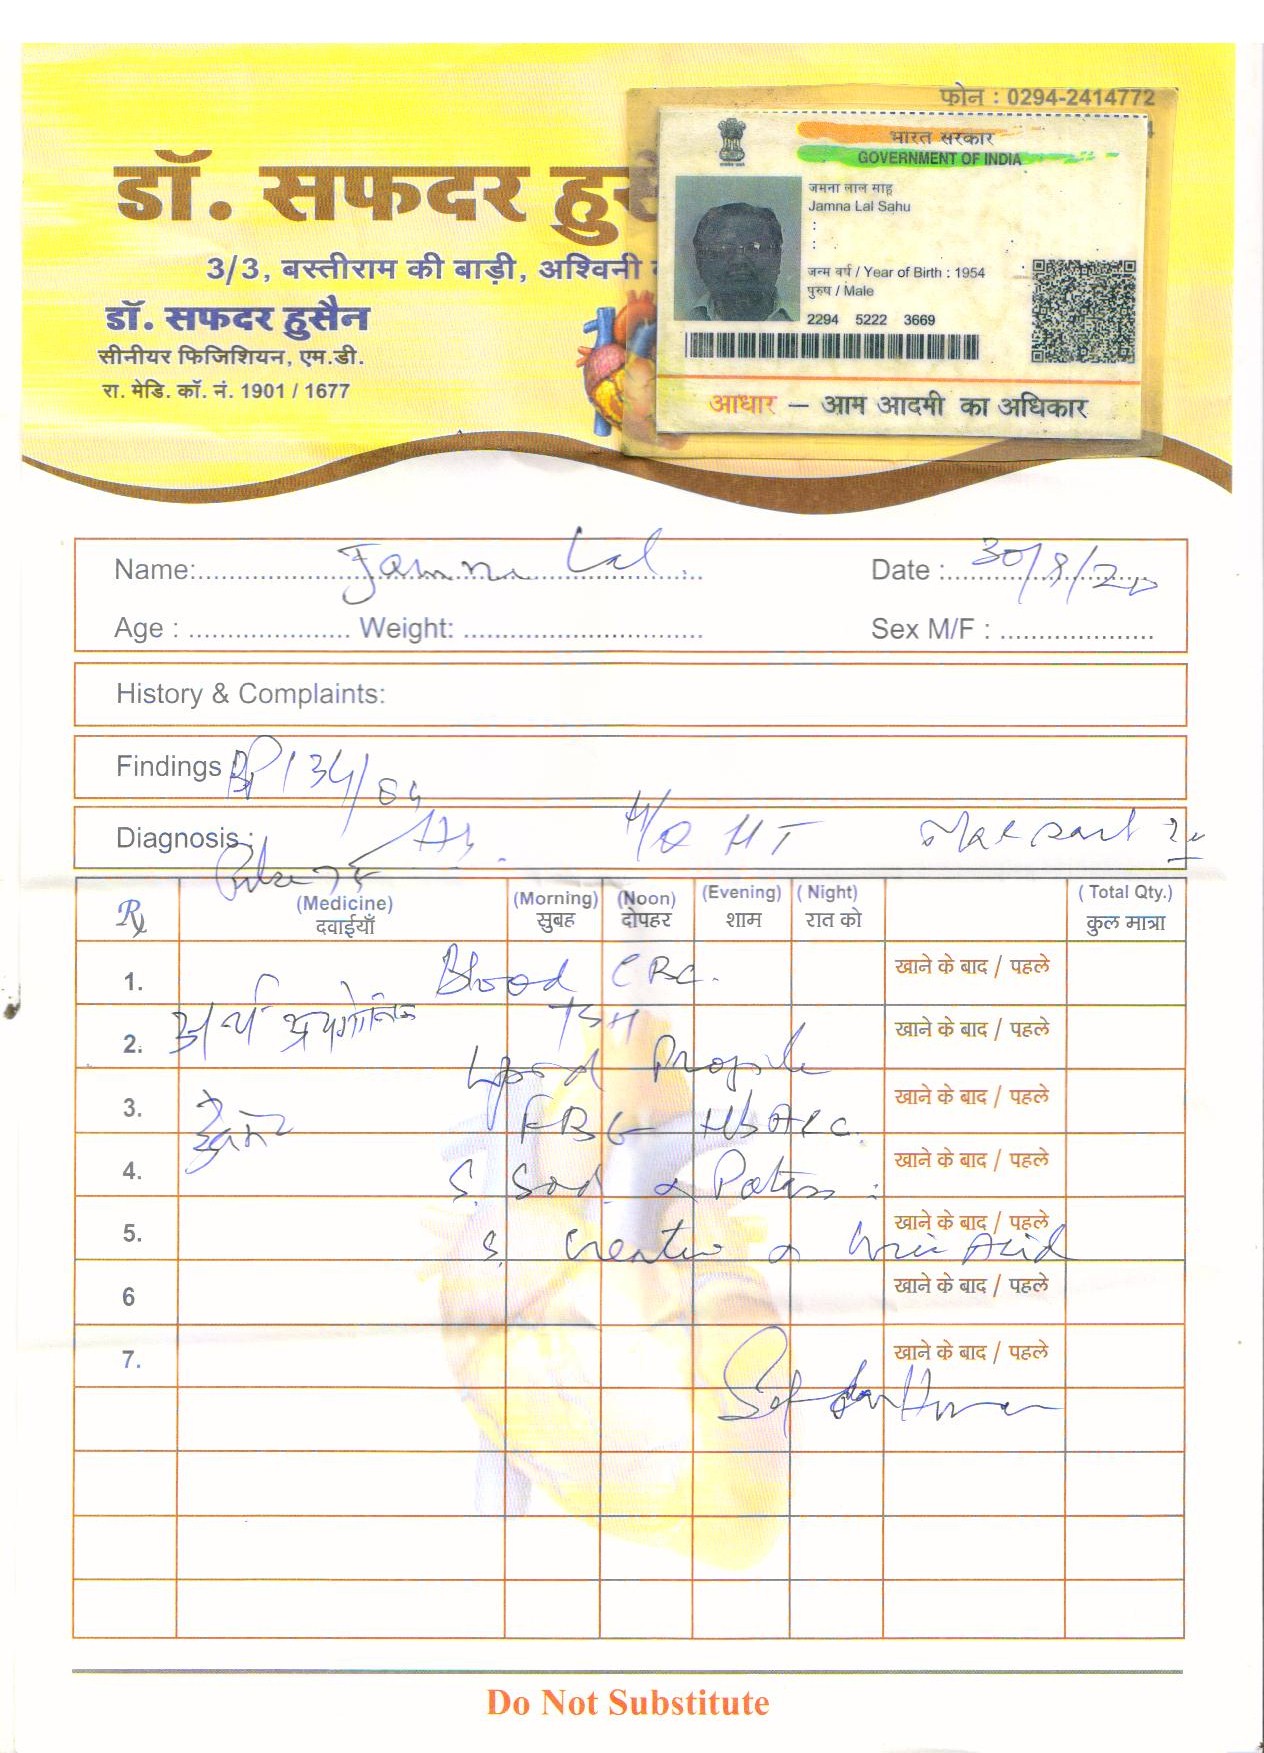 फोन : 0294-2414772
डॉ. सफदर
3/3, बस्तीराम की बाड़ी, अश्विनी
डॉ. सफदर हुसैन
सीनीयर फिजिशियन, एम.डी.
रा. मेडि. कॉ. नं. 1901 / 1677
भारत सरकार
GOVERNMENT OF INDIA
जमना लाल साहू
Jamna Lal Sahu
:
:
जन्म वर्ष / Year of Birth : 1954
पुरुष / Male
2294 5222 3669
आधार – आम आदमी का अधिकार
Name: Jamna Lal Date : 30/8/20
Age : Weight: Sex M/F :
History & Complaints:
Findings BP 134/84
Diagnosis : H/O HT
Pulse 78
Rx (Medicine) (Morning) (Noon) (Evening) (Night) (Total Qty.)
दवाईयाँ सुबह दोपहर शाम रात को कुल मात्रा
1. Blood CBC. खाने के बाद / पहले
2. TSH खाने के बाद / पहले
Lipid Profile
3. FBG HbA1c. खाने के बाद / पहले
4. S. Sod. & Potass : खाने के बाद / पहले
5. S. Creatin & Uric Acid खाने के बाद / पहले
6 खाने के बाद / पहले
7. खाने के बाद / पहले
Do Not Substitute